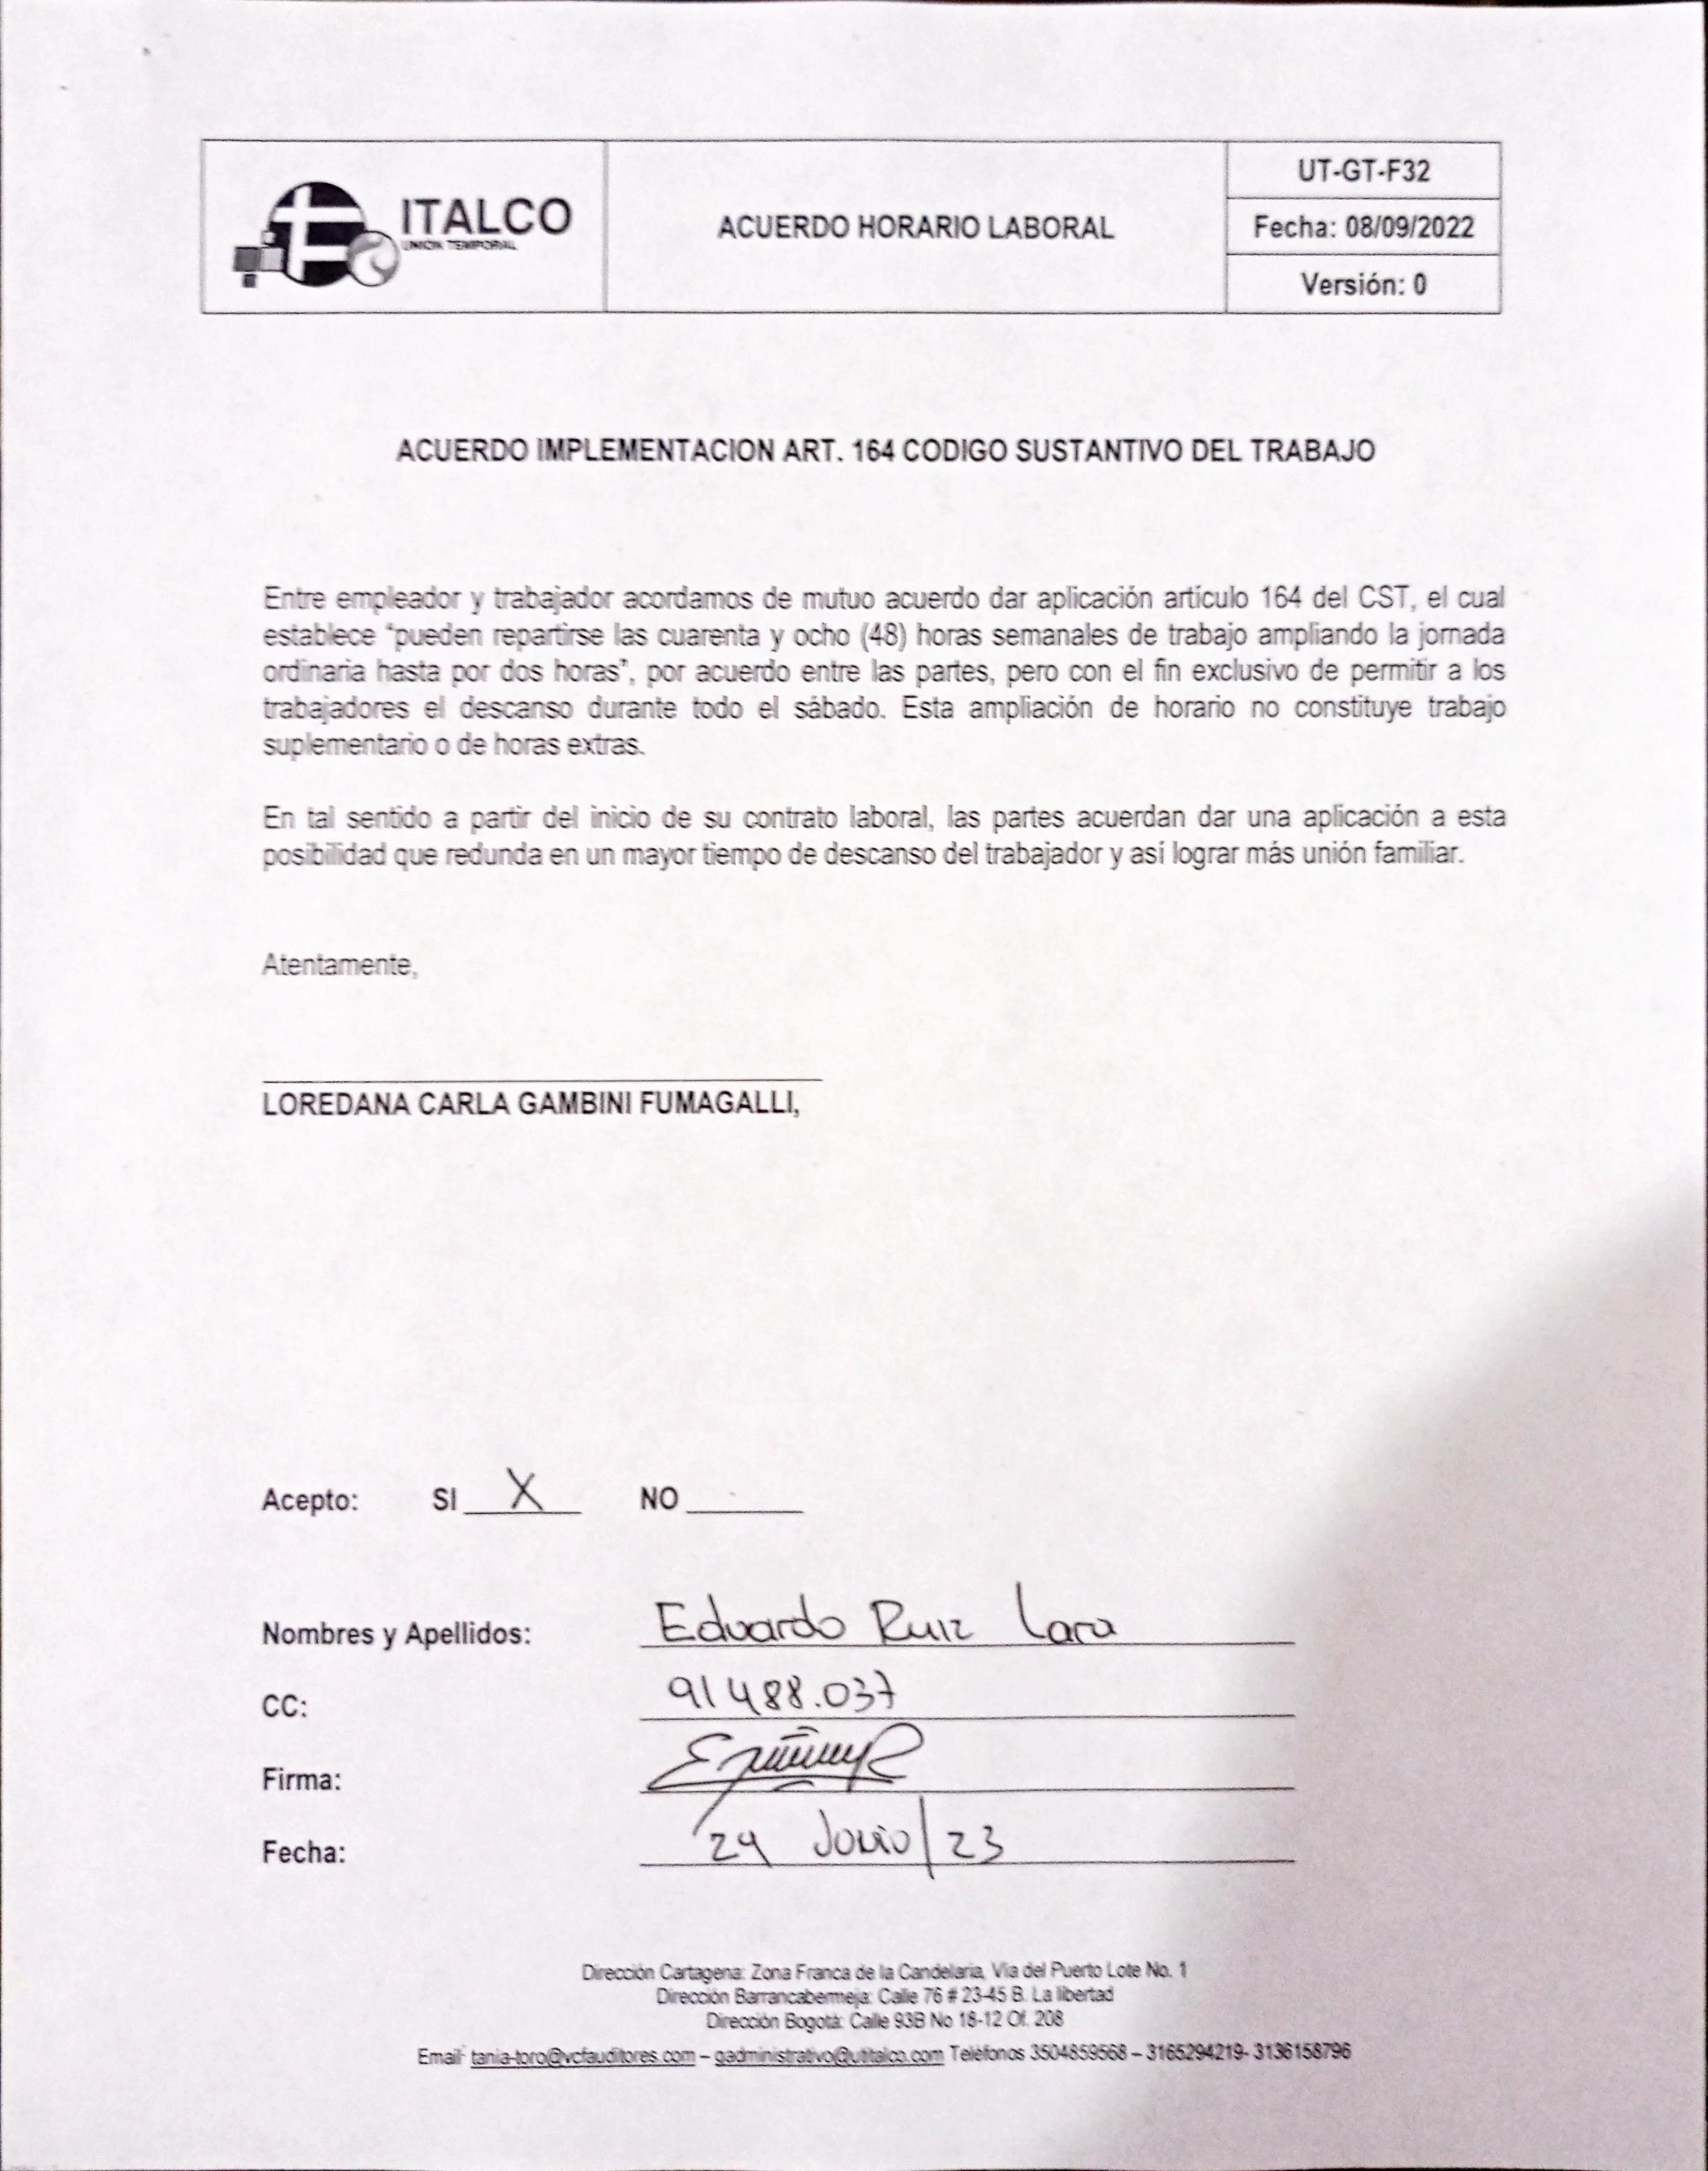 ITALCO
UNION TEMPORAL
ACUERDO HORARIO LABORAL
UT-GT-F32
Fecha: 08/09/2022
Versión: 0
ACUERDO IMPLEMENTACION ART. 164 CODIGO SUSTANTIVO DEL TRABAJO
Entre empleador y trabajador acordamos de mutuo acuerdo dar aplicación artículo 164 del CST, el cual
establece "pueden repartirse las cuarenta y ocho (48) horas semanales de trabajo ampliando la jornada
ordinaria hasta por dos horas", por acuerdo entre las partes, pero con el fin exclusivo de permitir a los
trabajadores el descanso durante todo el sábado. Esta ampliación de horario no constituye trabajo
suplementario o de horas extras.
En tal sentido a partir del inicio de su contrato laboral, las partes acuerdan dar una aplicación a esta
posibilidad que redunda en un mayor tiempo de descanso del trabajador y así lograr más unión familiar.
Atentamente,
LOREDANA CARLA GAMBINI FUMAGALLI,
Acepto: SI X NO
Nombres y Apellidos: Eduardo Ruiz Lara
CC: 91488.037
Firma:
Fecha: 29 Junio/23
Dirección Cartagena: Zona Franca de la Candelaria, Via del Puerto Lote No. 1
Dirección Barrancabermeja: Calle 76 # 23-45 B. La libertad
Dirección Bogotá: Calle 93B No 18-12 Of. 208
Email: tania-toro@vcfauditores.com – gadministrativo@utitalco.com Teléfonos 3504859568 – 3165294219- 3136158796